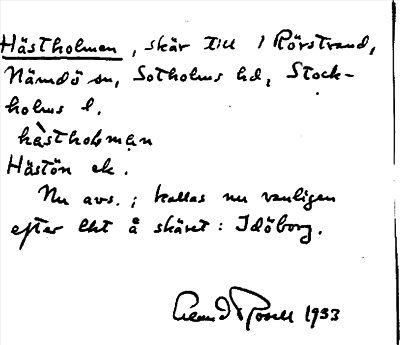 Hästholmen, skär till 1 Rörstrand,
Nämdö sn, Sotholms hd, Stock-
holms l.
hàstholman
Hästön ek.
Nu avs.; kallas nu vanligen
efter lht å skäret: Idöborg.
1933